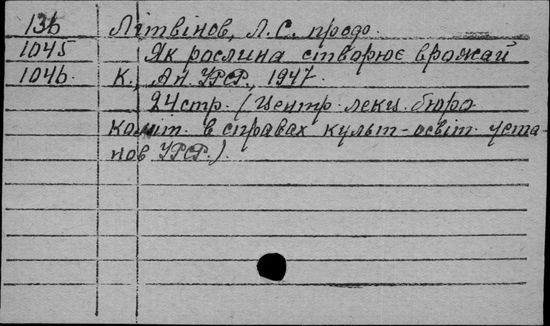 13б Літвінов, Л.С. профо.
1045 Як рослина створює врожай
1046. К., АН УРСР, 1947.
24стр. (Центр. лекц. бюро
коміт. в справах культ-освіт. уста-
нов УРСР.).